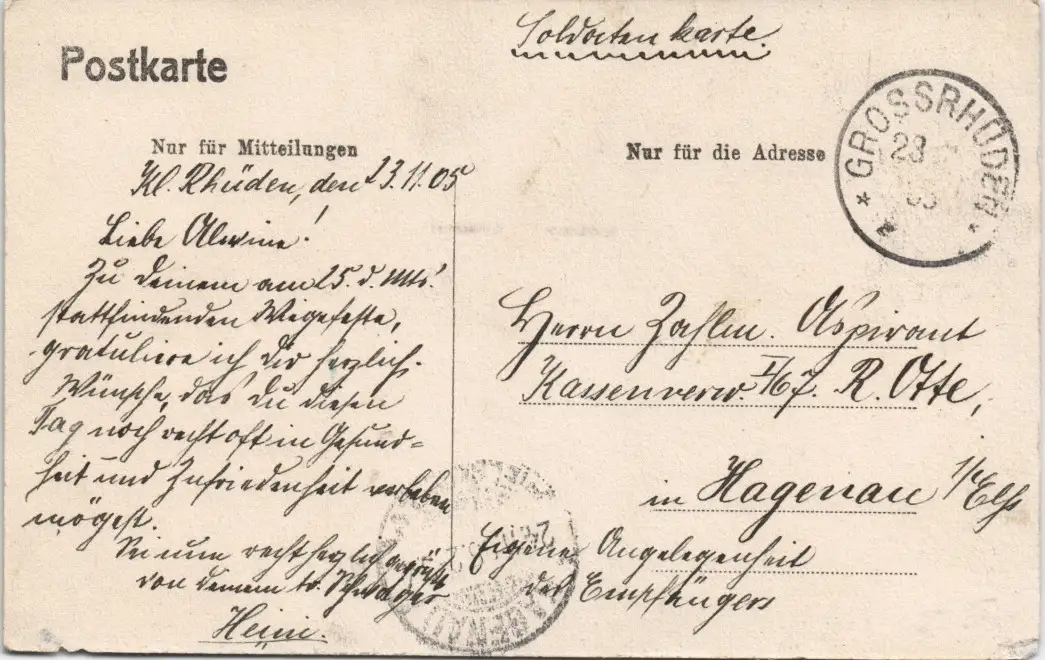 Soldatenkarte.
Postkarte
Nur für Mitteilungen
Nur für die Adresse
GROSSRHÜDEN
23
Kl. Rhüden, den 23.11.05
Liebe Alwine!
Zu deinem am 25. d. Mts.
stattfindenden Wiegefeste,
gratuliere ich dir herzlich.
Wünsche, das du diesen
Tag noch recht oft in Gesund=
heit und Zufriedenheit verleben
mögest.
Sei nun recht herzlich gegrüßt
von deinem tr. Schwager
Heini.
Herrn Zahlm. Aspirant
Kassenverw. I/67. R. Otte,
in Hagenau i/Els
Eigene Angelegenheit
des Empfängers
HAGENAU